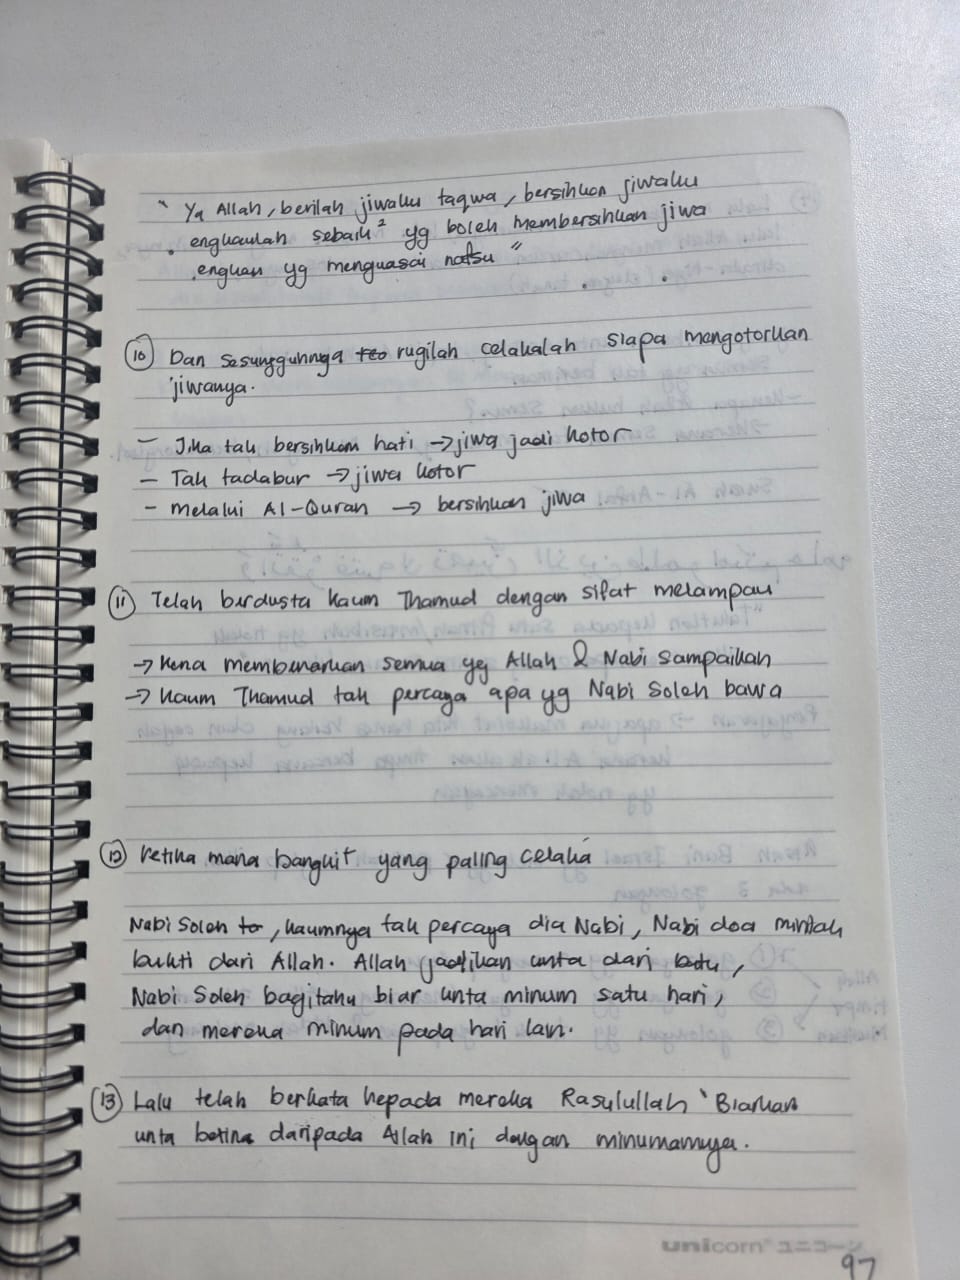 " Ya Allah, berilah jiwaku taqwa, bersihkan jiwaku
engkaulah sebaik² yg boleh membersihkan jiwa
engkau yg menguasai nafsu "
⑩ Dan sesungguhnya rugilah celakalah siapa mengotorkan
jiwanya.
- Jika tak bersihkan hati → jiwa jadi kotor
- Tak tadabur → jiwa kotor
- melalui Al-Quran → bersihkan jiwa
⑪ Telah berdusta kaum Thamud dengan sifat melampau
→ Kena membenarkan semua yg Allah & Nabi sampaikan
→ kaum Thamud tak percaya apa yg Nabi Soleh bawa
⑫ Ketika mana bangkit yang paling celaka
Nabi Soleh, kaumnya tak percaya dia Nabi, Nabi doa mintak
bukti dari Allah. Allah jadikan unta dari batu,
Nabi Soleh bagitahu biar unta minum satu hari,
dan mereka minum pada hari lain.
⑬ Lalu telah berkata kepada mereka Rasulullah ' Biarkan
unta betina daripada Allah ini dengan minumannya.
unicorn ユニコーン
97